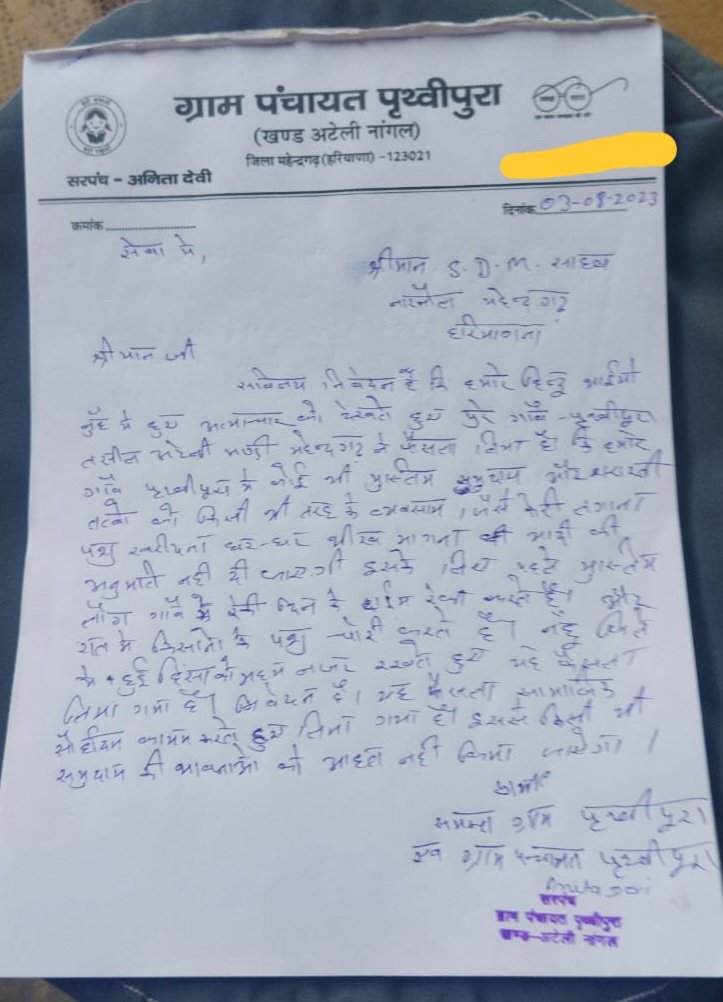 ग्राम पंचायत पृथ्वीपुरा
(खण्ड अटेली नांगल)
जिला महेन्द्रगढ़ (हरियाणा) -123021
सरपंच - अनिता देवी
क्रमांक
दिनांक 03-08-2023
सेवा मे,
श्रीमान S.D.M. साहब
नारनौल महेन्द्रगढ़
हरियाणा
श्रीमान जी
सविनय निवेदन है कि हमारे हिन्दू भाईयो
नुँह मे हुए अत्याचार को देखते हुए पुरे गाँव पृथ्वीपुरा
महेन्द्रगढ़ ने फैसला लिया है कि हमारे
गाँव पृथ्वीपुरा मे कोई भी मुस्लिम समुदाय और शरारती
तत्वो को किसी भी तरह के व्यवसाय, जैसे फेरी लगाना
पशु खरीदना घर-घर भीख मागना की आदी की
अनुमति नही दी जाएगी इसके लिए पहले मुस्लिम
लोग गाँव मे रेकी दिन के टाईम रेकी करते है। और
रात मे किसानो के पशु चोरी करते है। नहू जिले
मे हुई हिंसा को मध्य नजर रखते हुए यह फैसला
लिया गया है। निवेदन है। यह फैसला सामाजिक
कायम करते हुए लिया गया है। इससे किसी भी
समुदाय की भावनाओ को आहत नही किया जाऐगा।
प्रार्थी
समस्त ग्राम पृथ्वीपुरा
एव ग्राम पन्चायत पृथ्वीपुरा
सरपंच
ग्राम पंचायत पृथ्वीपुरा
खण्ड-अटेली नांगल